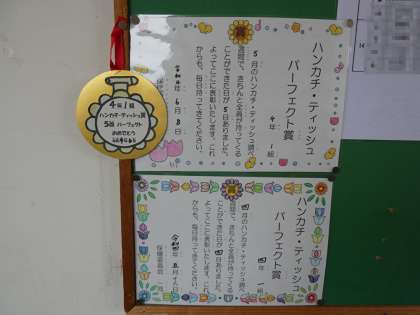 4年1組
ハンカチ・ティッシュ賞
5回 パーフェクト
おめでとう
ハンカチ・ティッシュ
パーフェクト賞
4年 1組
5月のハンカチ・ティッシュ調べ
週間で、きちんと全員が持ってくる
ことができた日が5日ありました。
よってここに表彰いたします。これ
からも、毎日持ってきてください。
令和4年 6月 8日
ハンカチ・ティッシュ
パーフェクト賞
四年 一組
四月のハンカチ・ティッシュ調べ
週間で、きちんと全員が持ってくる
ことができた日が四日ありました。
よってここに表彰いたします。これ
からも、毎日持ってきてください。
令和四年 五月十八日
保健委員会